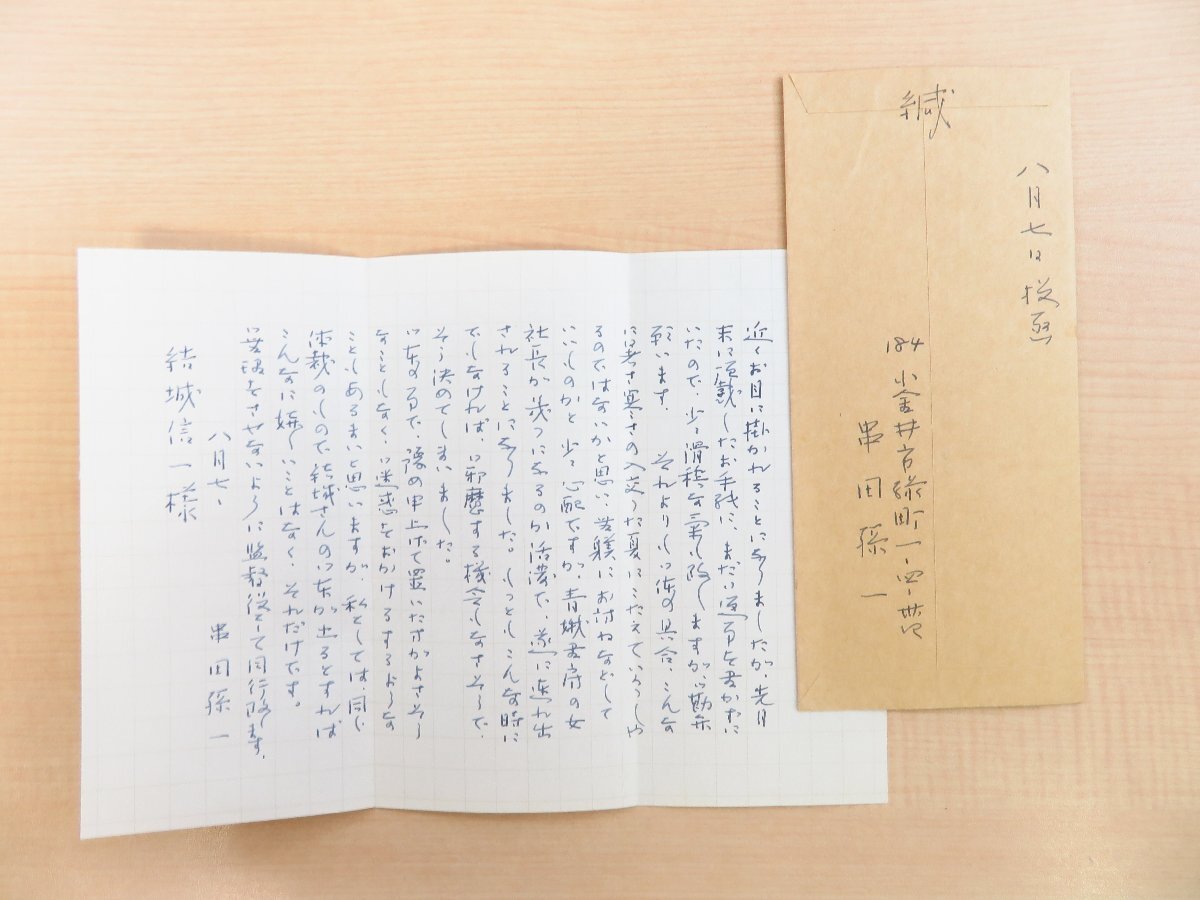 緘
八月七日投函
184 小金井市緑町一ノ四ノ廿八
串田孫一
近くお目に掛かれることになりましたが、先月
末に頂戴したお手紙に、まだご返事を書かずに
いたので、少々滑稽な気も致しますが、ご勘弁
願います。 それよりもお体の具合、こんな
に暑さ寒さの入交った夏にこたえていらっしゃ
るのではないかと思い、无躾にお訪ねなどして
いいものかと少々心配ですが、青娥書房の女
社長がまことに活溌で、遂に連れ出
されることになりました。もっともこんな時に
でもしなければ、お邪魔する機会もなさそうで、
そう決めてしまいました。
ご本の事で、予め申上げて置いた方がよさそう
なこともなく、ご迷惑をおかけするような
こともあるまいと思いますが、私としては同じ
体裁のもので結城さんのご本が出るとすれば
こんなに嬉しいことはなく、それだけです。
ご無理をさせないように監督役として同行致します。
八月七日
串田孫一
結城信一様